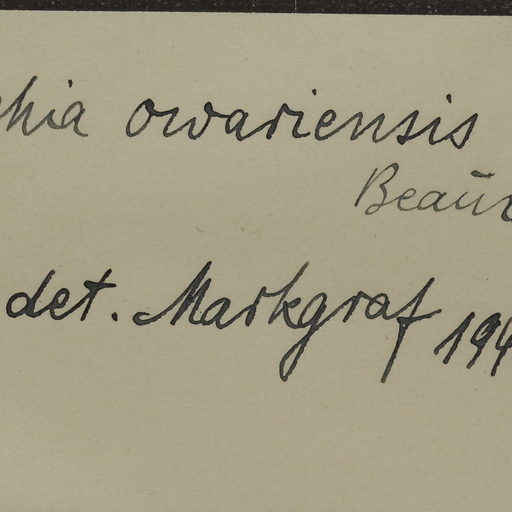 hia owariensis
Beauv
det. Markgraf 194